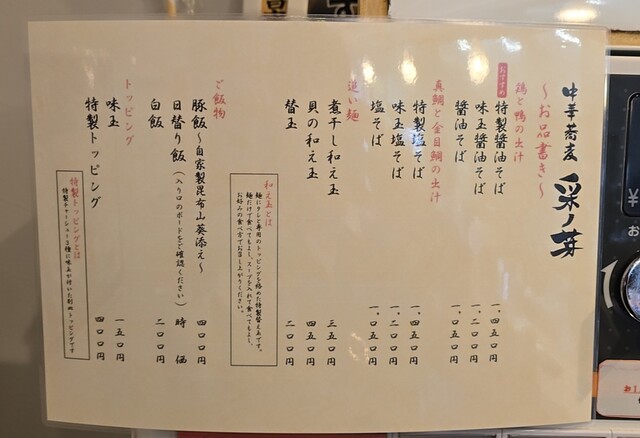 中華蕎麦 采ノ芽
～お品書き～
鶏と鴨の出汁
おすすめ 特製醤油そば 一、四五〇円
味玉醤油そば 一、二〇〇円
醤油そば 一、〇五〇円
真鯛と金目鯛の出汁
特製塩そば 一、四五〇円
味玉塩そば 一、二〇〇円
塩そば 一、〇五〇円
追い麺
煮干し和え玉 三五〇円
貝の和え玉 四五〇円
替玉 二〇〇円
和え玉とは
麺にタレと専用のトッピングを絡めた特製替え玉です。
麺だけで食べてもよし、スープを入れて食べてもよし、
お好みの食べ方でお召し上がりください。
ご飯物
豚飯～自家製昆布山葵添え～ 四〇〇円
日替り飯（入り口のボードをご確認ください） 時価
白飯 二〇〇円
トッピング
味玉 一五〇円
特製トッピング 四〇〇円
特製トッピングとは
特製チャーシュー2種に味玉が付いたお得なトッピングです
￥
お